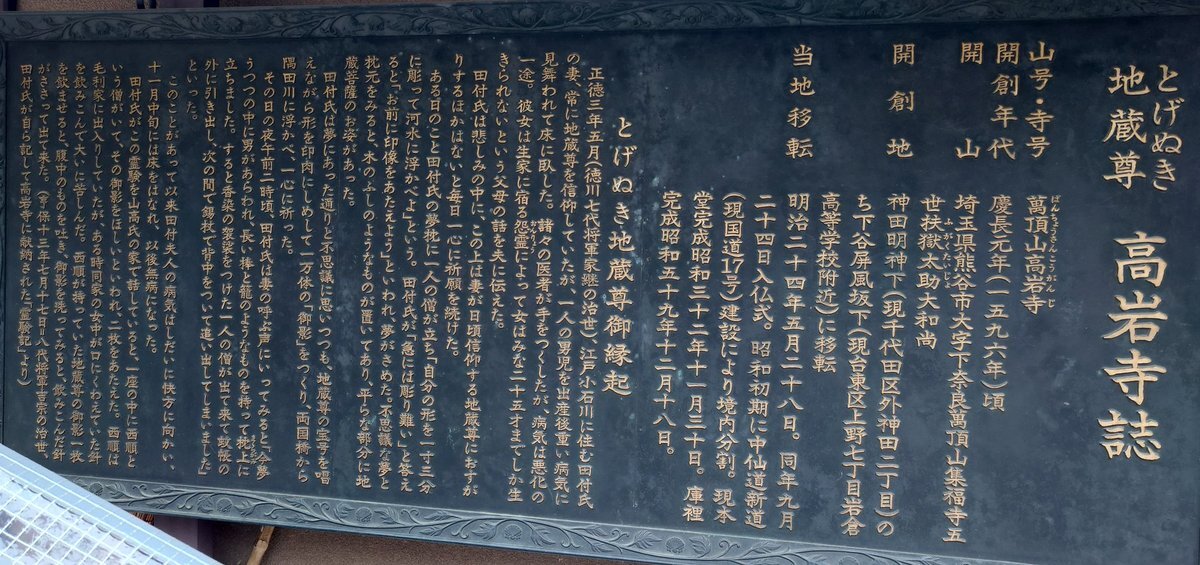 とげぬき
地蔵尊 高岩寺誌
山号・寺号 萬頂山高岩寺
ばんちょうざんこうがんじ
開創年代 慶長元年(一五九六年)頃
開山 埼玉県熊谷市大字下奈良萬頂山集福寺五
世扶嶽太助大和尚
開創地 神田明神下(現千代田区外神田二丁目)の
ち下谷屏風坂下(現台東区上野七丁目岩倉
高等学校附近)に移転
当地移転 明治二十四年五月二十八日。同年九月
二十四日入仏式。昭和初期に中仙道新道
(現国道17号)建設により境内分割。現本
堂完成昭和三十二年十一月三十日。庫裡
完成昭和五十九年十二月十八日。
とげぬき地蔵尊御縁起
正徳三年五月(徳川七代将軍家継の治世)、江戸小石川に住む田付氏
の妻、常に地蔵尊を信仰していたが、一人の男児を出産後重い病気に
見舞われて床に臥した。諸々の医者が手をつくしたが、病気は悪化の
一途。彼女は生家に宿る怨霊によって女はみな二十五才までしか生
きられないという父母の話を夫に伝えた。
田付氏は悲しみの中に、この上は妻が日頃信仰する地蔵尊におすが
りするほかはないと毎日一心に祈願を続けた。
ある日のこと田付氏の夢枕に一人の僧が立ち「自分の形を一寸三分
に彫って河水に浮かべよ」という。田付氏が「急には彫り難い」と答え
ると「お前に印像をあたえよう」といわれ、夢がさめた。不思議な夢と
枕元をみると、木のふしのようなものが置いてあり、平らな部分に地
蔵菩薩のお姿があった。
田付氏は夢にあった通りと不思議に思いつつも、地蔵尊の宝号を唱
えながら形を印肉にしめして一万体の「御影」をつくり、両国橋から
隅田川に浮かべ、一心に祈った。
その日の夜午前二時頃、田付氏は妻の呼ぶ声にいってみると「今夢
うつつの中に男があらわれ、長い棒と籠のようなものを持って枕上に
立ちました。すると香染の袈裟をつけた一人の僧が出て来て蚊帳の
外に引き出し、次の間で錫杖で背中をついて追い出してしまいました」
といった。
このことがあって以来田付夫人の病気はしだいに快方に向かい、
十一月中旬には床をはなれ、以後無病になった。
田付氏がこの霊験を山高氏の家で話していると、一座の中に西順と
いう僧がいて、その御影をほしいといわれ、二枚をあたえた。西順は
毛利家に出入りしていたが、ある時同家の女中が口にくわえていた針
を飲みこんで大いに苦しんだ。西順が持っていた地蔵尊の御影一枚
を飲ませると、腹中のものを吐き、御影を洗ってみると、飲みこんだ針
がささって出て来た。(享保十三年七月十七日八代将軍吉宗の治世、
田付氏が自ら記して高岩寺に献納された「霊験記」より)